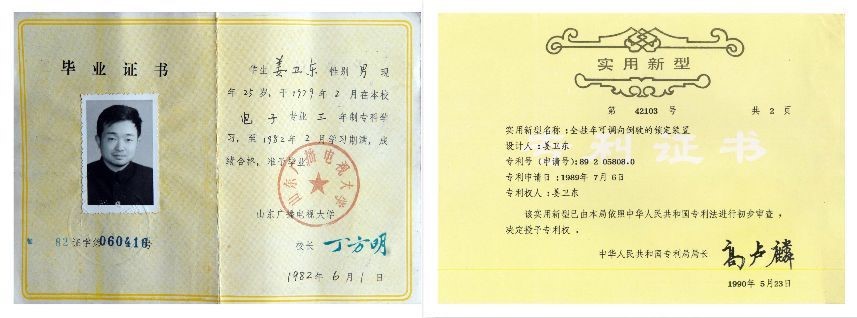 毕业证书
学生 姜卫东 性别 男 现
年25岁，于1979年2月在本校
电子 专业 三 年制专科学
习，至1982年2月学习期满，成
绩合格，准予毕业。
山东广播电视大学
山东广播电视大学
校长 丁方明
82 证字第060416号
1982年6月1日
实用新型
第 42103 号 共 2 页
实用新型名称：全挂车可调向倒驶的锁定装置
设计人：姜卫东
专利号(申请号)：89 2 05808.0
专利申请日：1989年 7月 6日
专利权人：姜卫东
利证书
该实用新型已由本局依照中华人民共和国专利法进行初步审查，
决定授予专利权。
中华人民共和国专利局局长 高卢麟
1990年 5月23日